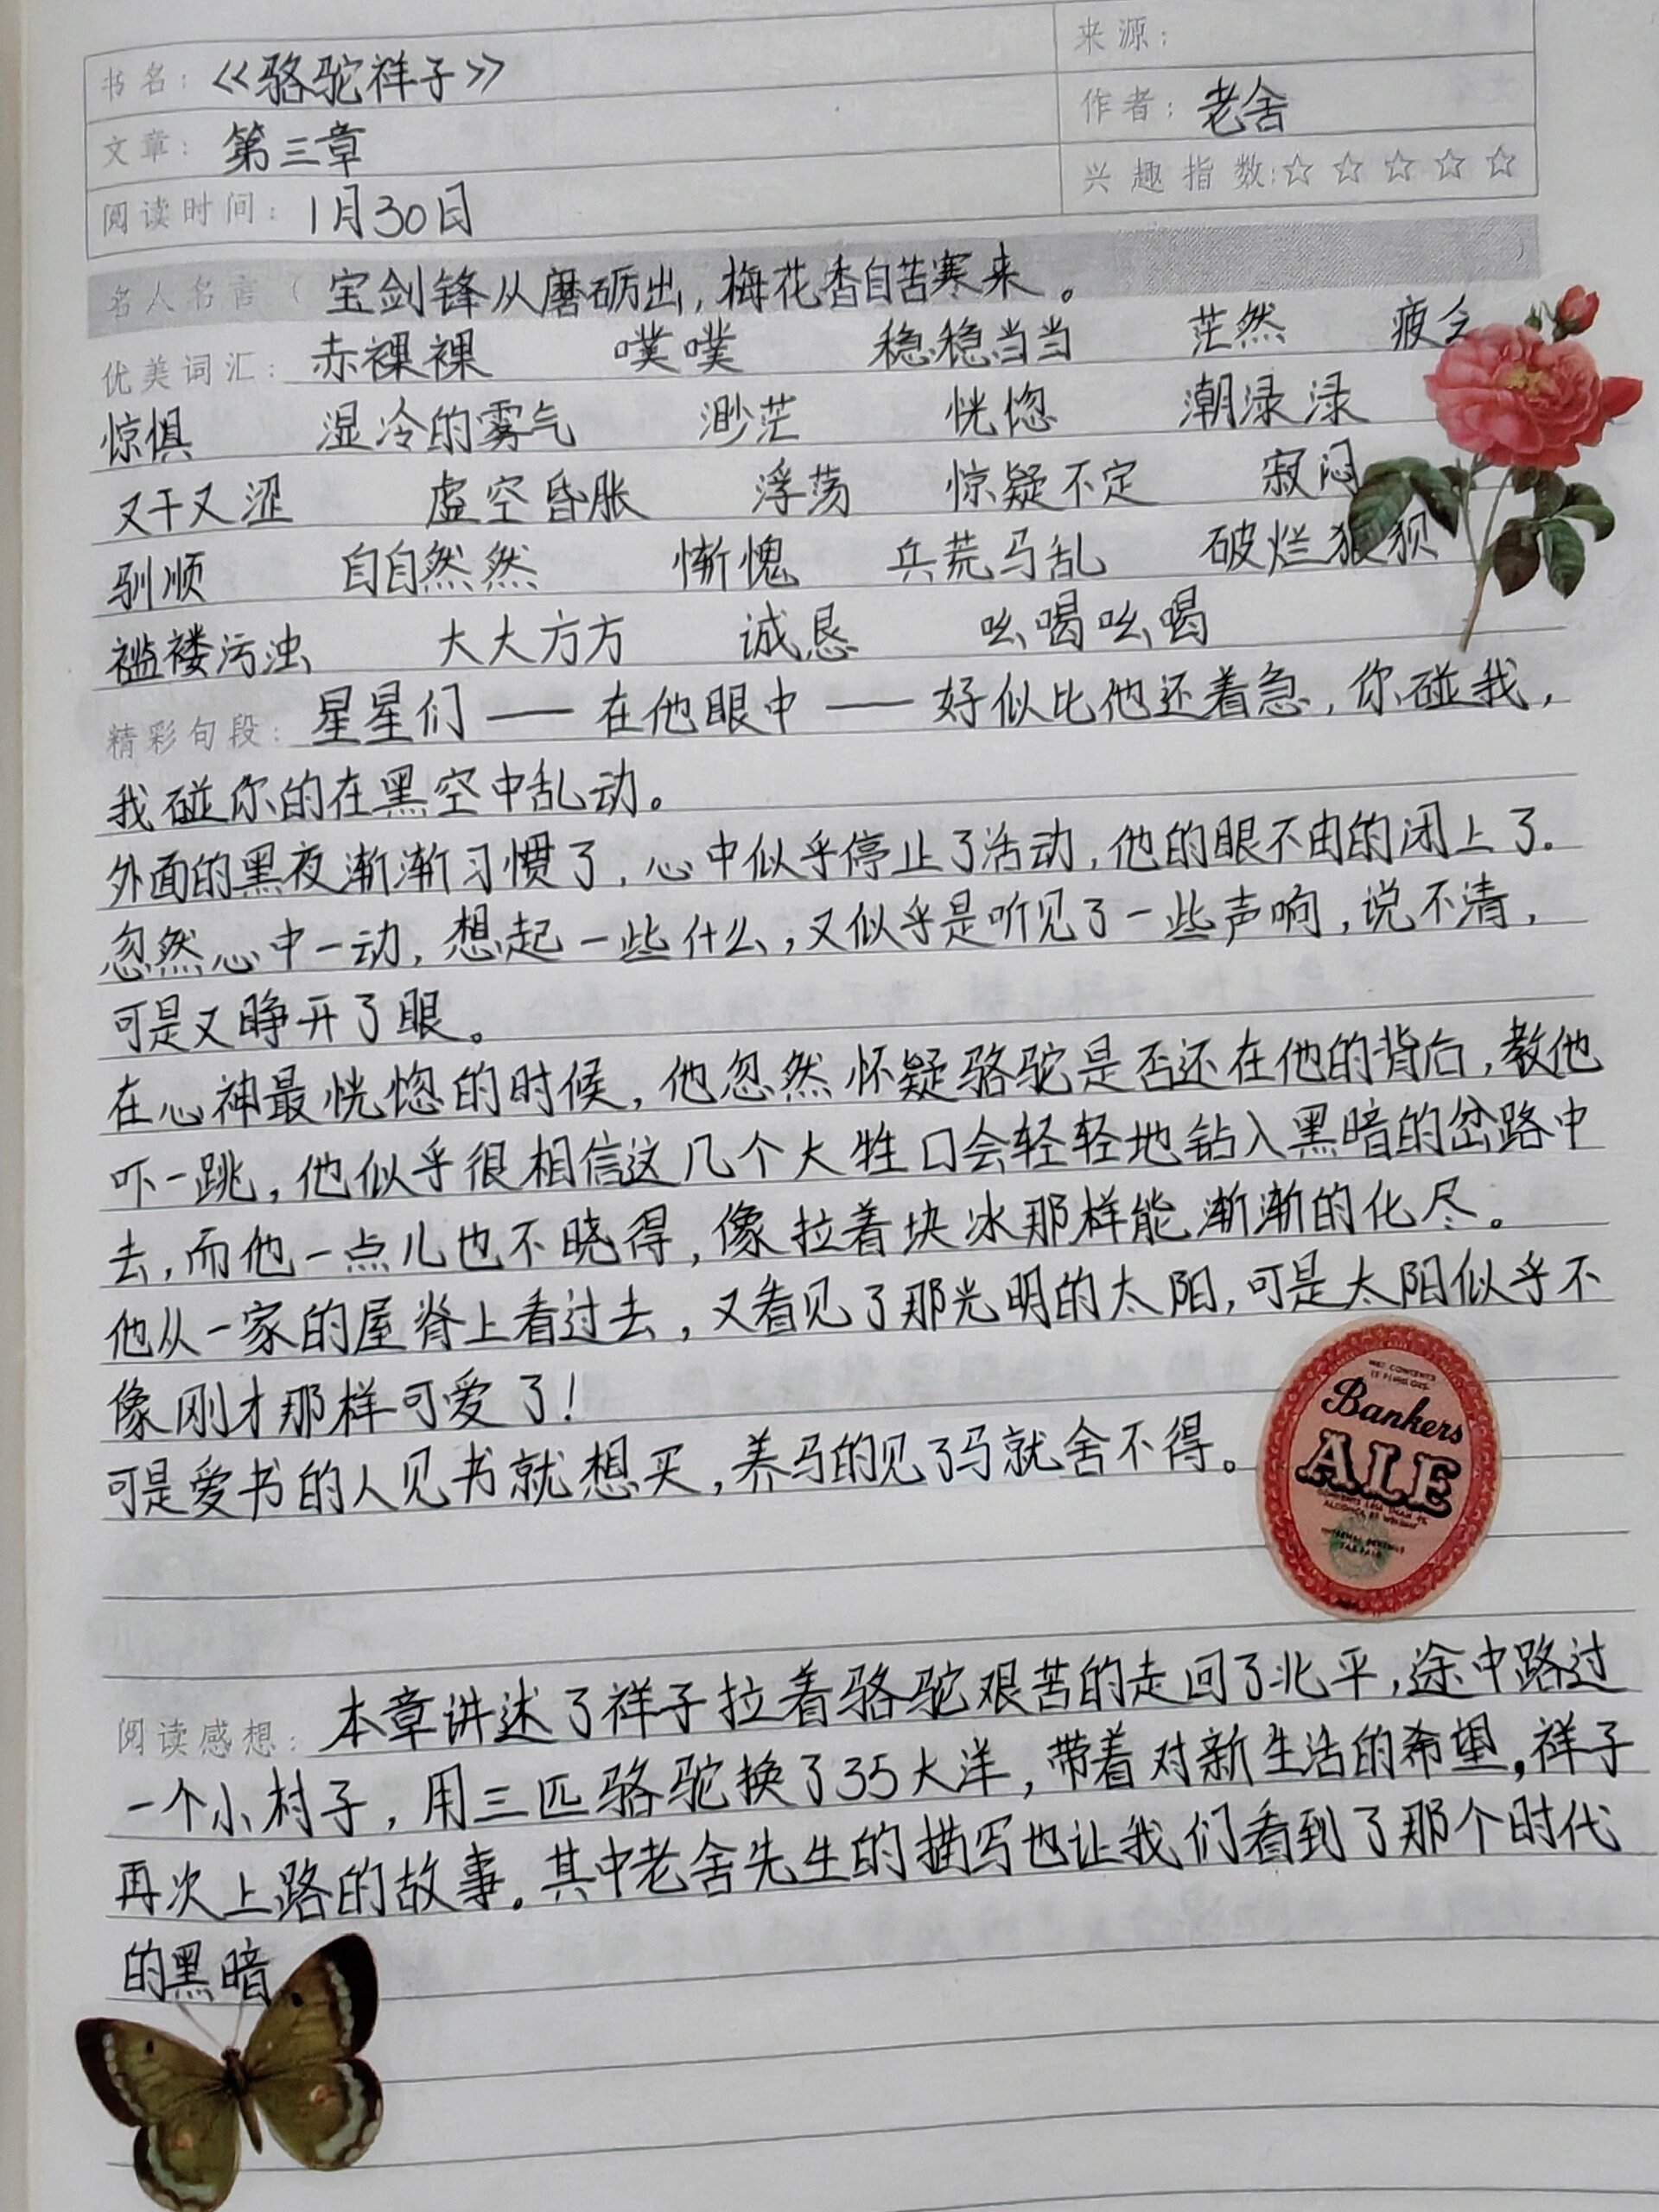 书名: 《骆驼祥子》
来源:
文章: 第三章
作者: 老舍
阅读时间: 1月30日
兴趣指数:☆☆☆☆☆
名人名言( 宝剑锋从磨砺出,梅花香自苦寒来。 )
优美词汇: 赤裸裸 噗噗 稳稳当当 茫然 疲
惊惧 湿冷的雾气 渺茫 恍惚 潮渌渌
又干又涩 虚空昏胀 浮荡 惊疑不定 寂闷
驯顺 自自然然 惭愧 兵荒马乱 破烂狼狈
褴褛污浊 大大方方 诚恳 吆喝吆喝
精彩句段: 星星们——在他眼中——好似比他还着急,你碰我,
我碰你的在黑空中乱动。
外面的黑夜渐渐习惯了,心中似乎停止了活动,他的眼不由的闭上了.
忽然心中一动,想起一些什么,又似乎是听见了一些声响,说不清,
可是又睁开了眼。
在心神最恍惚的时候,他忽然怀疑骆驼是否还在他的背后,教他
吓一跳,他似乎很相信这几个大牲口会轻轻地钻入黑暗的岔路中
去,而他一点儿也不晓得,像拉着块冰那样能渐渐的化尽。
他从一家的屋脊上看过去,又看见了那光明的太阳,可是太阳似乎不
像刚才那样可爱了!
可是爱书的人见书就想买,养马的见了马就舍不得。
Bankers
ALE
阅读感想: 本章讲述了祥子拉着骆驼艰苦的走回了北平,途中路过
一个小村子,用三匹骆驼换了35大洋,带着对新生活的希望,祥子
再次上路的故事。其中老舍先生的描写也让我们看到了那个时代
的黑暗